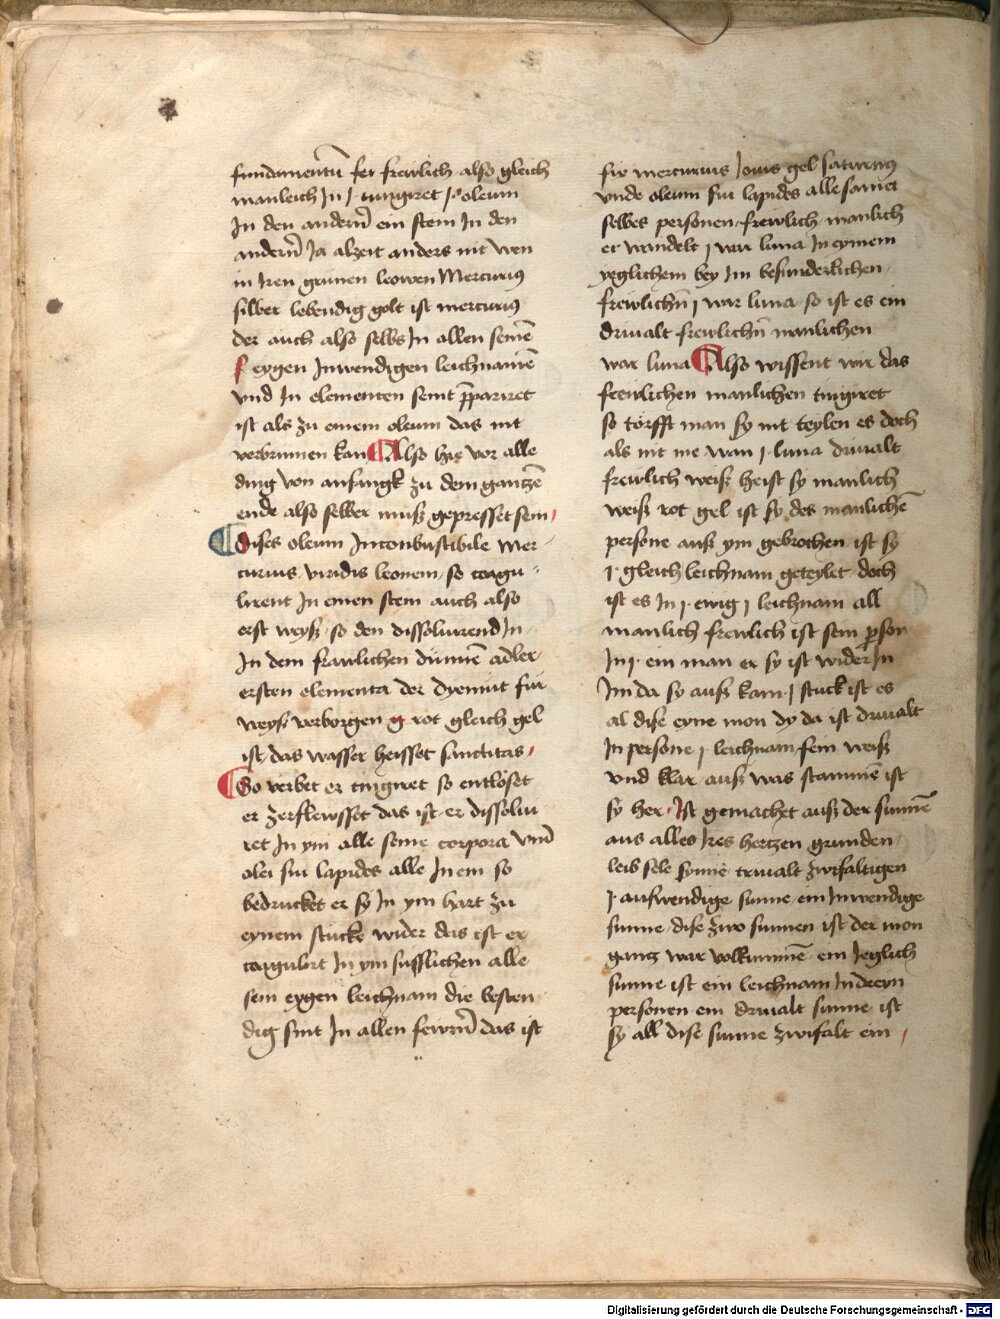 fundamentū fei frewlich also gleich
manleich In j tingiret j oleum
In den andern̄ ein stein In den
andern̄ Ja alzeit anders nit wen
in Iren grünen leowen Mercurius
silber lebendig golt ist mercurius
der auch also selbs In allen seinē
eygen Inwendigen leichnamē
vnd In elementen seint p̄pariret
ist als zu einem oleum das nit
verbrinnen kan Also hie vor alle
ding von anfangk zu dem gantzē
ende also selber muß gepresset sein
dises oleum Inconbustibile Mer-
curius viridis leonem so coagu-
lirent In einen stein auch also
erst weyß so den dissoluirend In
In dem frawlichen dünnē adler
ersten elementa der dyemut für
weyß verborgen rot gleich gel
ist das wasser heisset sanctitas
So verbet er tingiret so entloset
er zerflewsset das ist er dissolui
ret In ym alle seine corpora vnd
olei sui lapides alle In em so
bedrucket er sy In ym hart zu
eynem stucke wider das ist er
coagulirt In ym susslichen alle
sein eygen leichnam die besten
dig sint In allen fewrn̄ das ist
fix mercurius Jouis gel saturnus
vnde oleum sui lapides alle samet
selbes personen frewlich manlich
er wandelt j war luna In eynem
yeglichem bey Im besunderlichen
frewlichn̄ j war luna so ist es ein
driualt frewlichn̄ manlichen
war luna Also wissent wir das
frewlichen manlichen tingiret
so törfft man sy nit teylen es doch
als nit me wan j luna driualt
frewlich weiß heist sy manlich
weiß rot gel ist sy des manlichē
persone auß ym gebrochen ist sy
j gleich leichnam geteylet doch
ist es In j ewig j leichnam all
manlich frewlich ist sein person
In j ein man er sy ist wider In
Im da sy auß kam j stuck ist es
al dise eyne mon dy da ist driualt
In persone j leichnam sein weiß
vnd klar auß was stammē ist
sy her Ist gemachet auß der sunnē
aus alles Ires hertzen grunden
leib sele synne triualt zwifaltigen
j auswendige sunne ein Inwendige
sunne dise zwo sunnen ist der mon
gantz war volkummē ein Jeglich
sunne ist ein leichnam In dreyn
personen ein driualt sunne ist
sy all dise sunne zwifalt ein
Digitalisierung gefördert durch die Deutsche Forschungsgemeinschaft - DFG